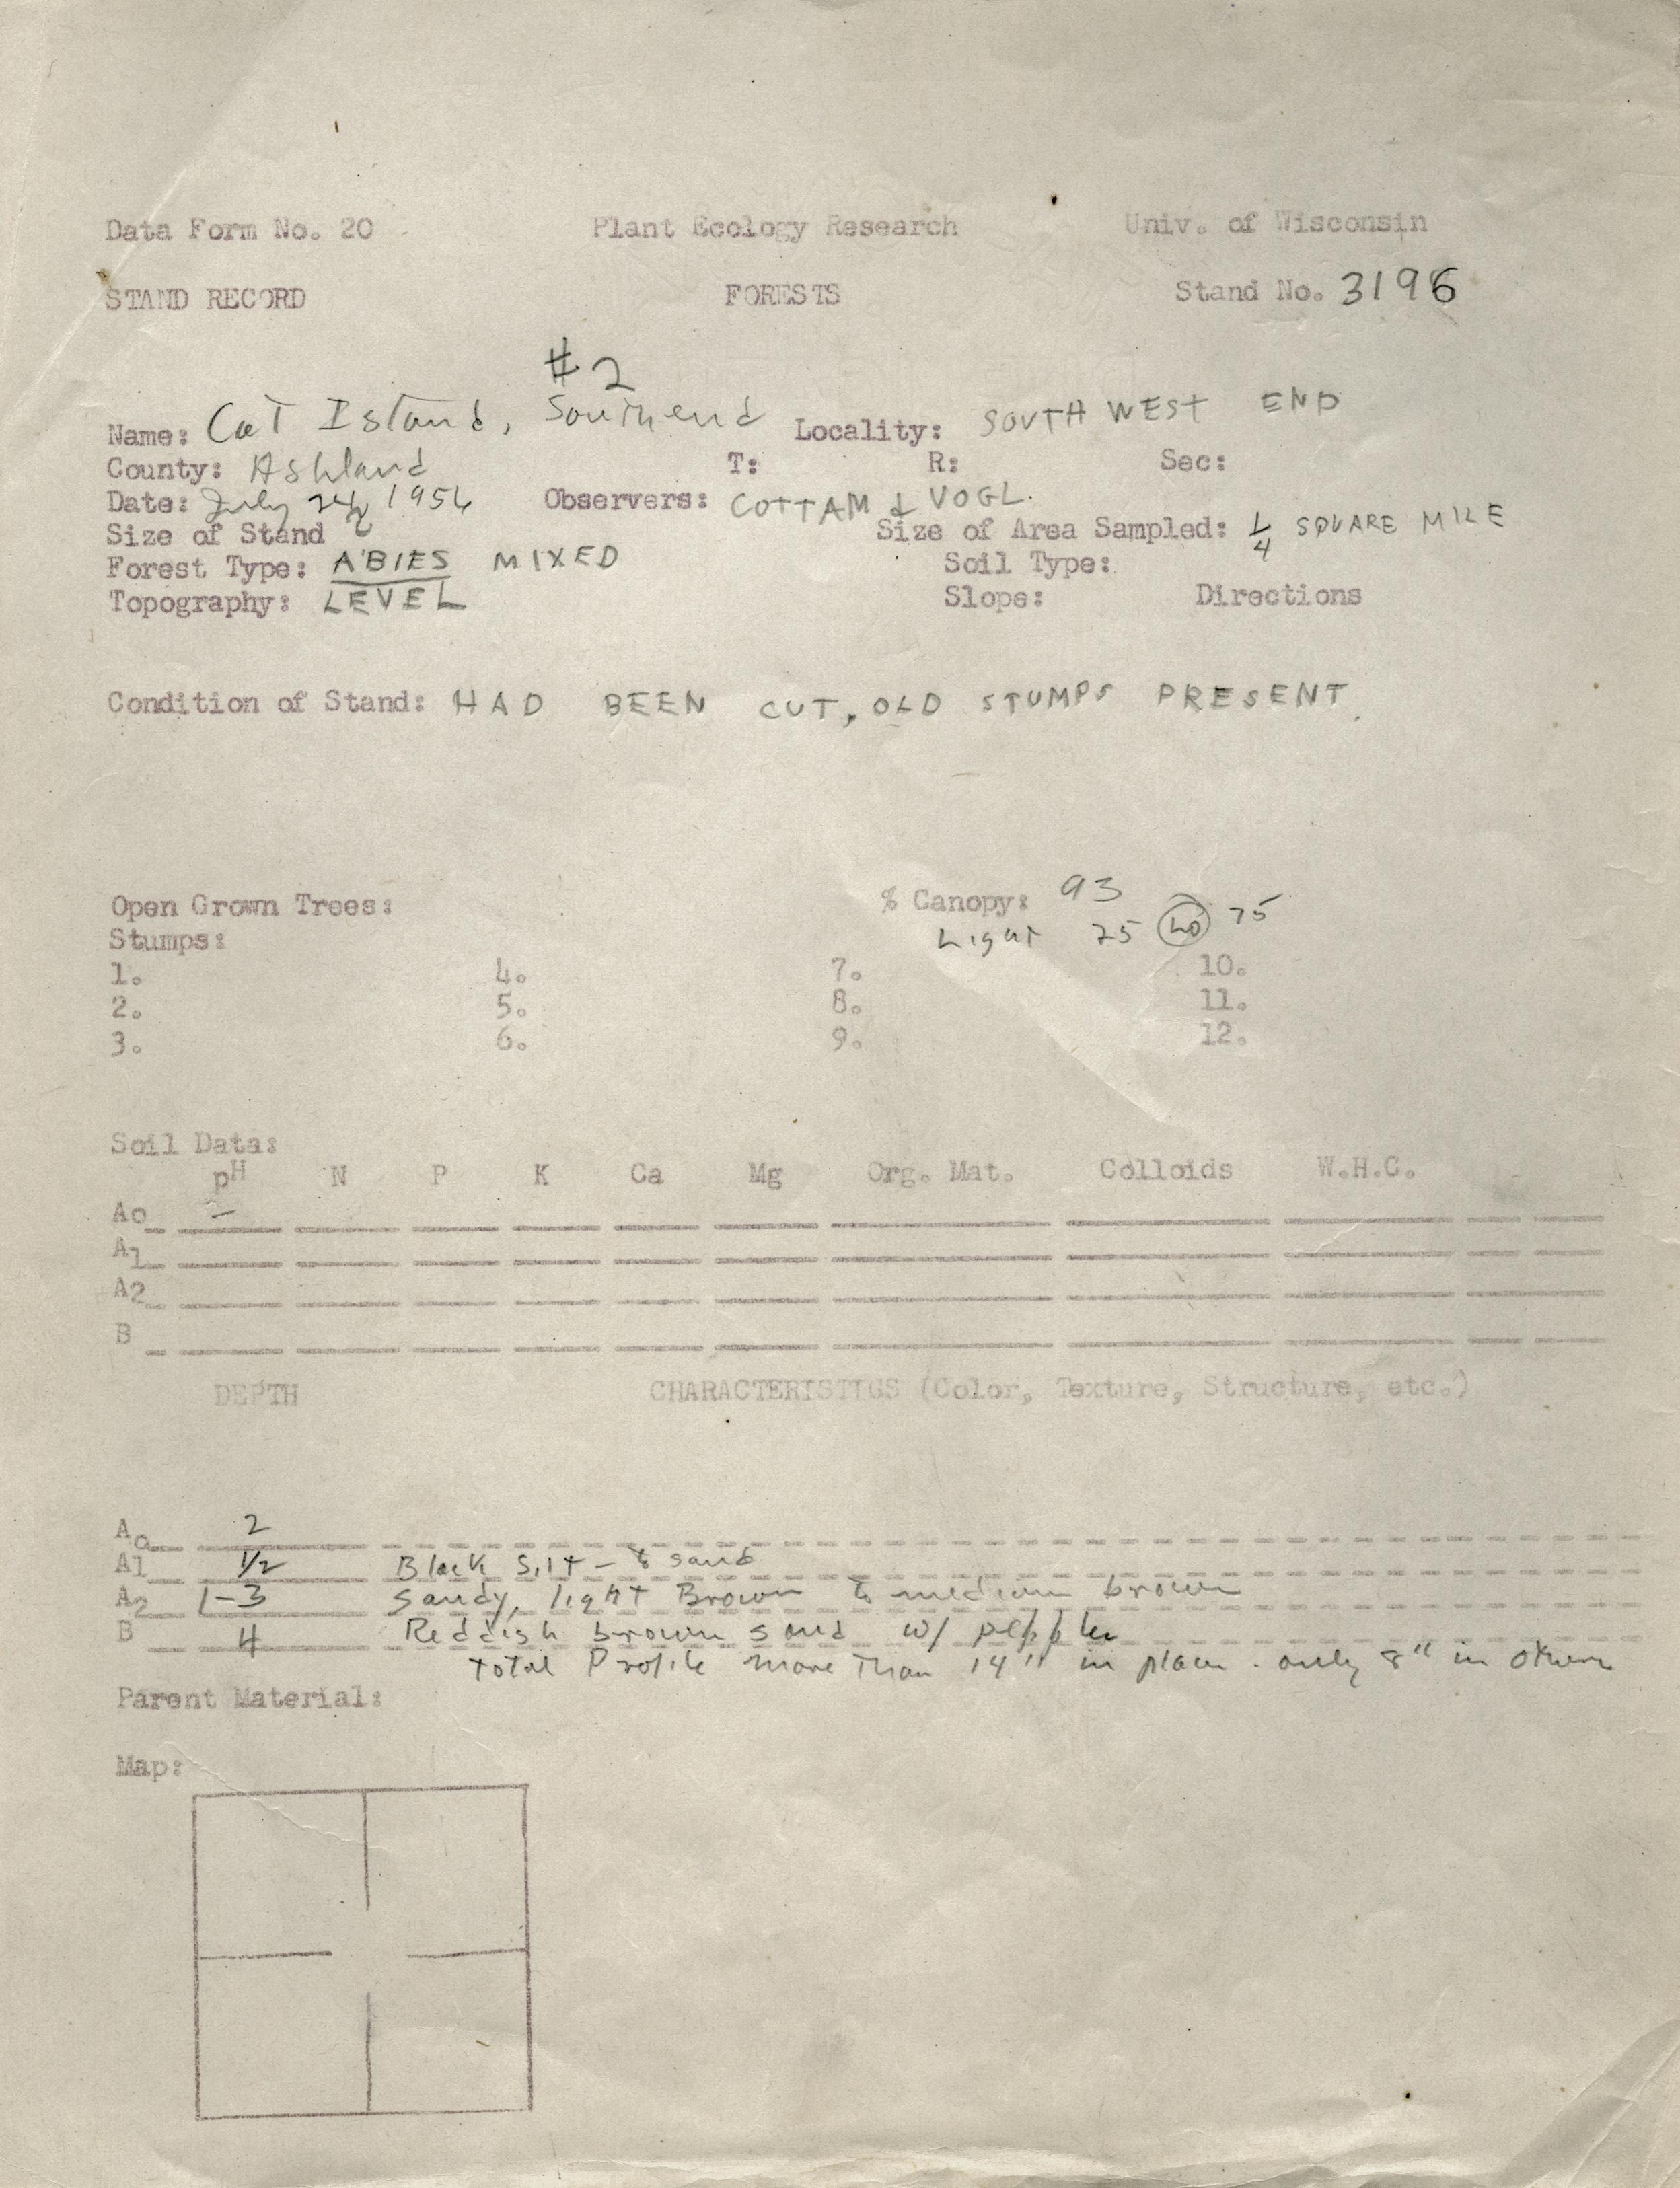 Data Form No. 20 Plant Ecology Research Univ. of Wisconsin
STAND RECORD FORESTS Stand No. 3196
#2
Name: Cat Island, South end Locality: SOUTH WEST END
County: Ashland T: R: Sec:
Date: July 24, 1956 Observers: COTTAM & VOGL.
Size of Stand Size of Area Sampled: 1/4 SQUARE MILE
Forest Type: ABIES MIXED Soil Type:
Topography: LEVEL Slope: Directions
Condition of Stand: HAD BEEN CUT, OLD STUMPS PRESENT.
Open Grown Trees: % Canopy: 93
Stumps: Light 25 40 75
1. 4. 7. 10.
2. 5. 8. 11.
3. 6. 9. 12.
Soil Data:
pH N P K Ca Mg Org. Mat. Colloids W.H.C.
Ao
A1
A2
B
DEPTH CHARACTERISTICS (Color, Texture, Structure, etc.)
Ao 2
A1 1/2 Black silt - to sand
A2 1-3 Sandy, light Brown to medium brown
B 4 Reddish brown sand w/ pebbles
Total Profile more than 14" in places. only 8" in others
Parent Material:
Map: